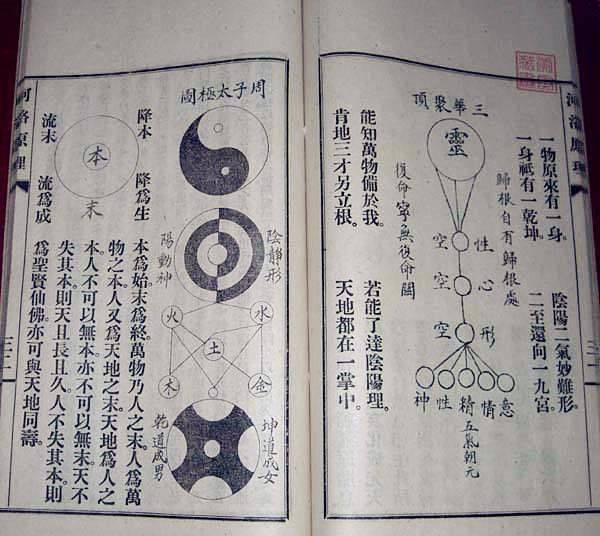 河洛原理
一物原來有一身。 陰陽二氣妙難形。
一身祇有一乾坤。 二至還向一九宮。
三華聚頂
靈
歸根自有歸根處
復命寧無復命關
空 性
空 心
空 形
神 性 精 情 意
五氣朝元
能知萬物備於我。 若能了達陰陽理。
肯地三才另立根。 天地都在一掌中。
周子太極圖
陰靜形
陽動神
水
火
土
金
木
坤道成女
乾道成男
降本 降爲生
流末 流爲成
本
末
本爲始。末爲終。萬物乃人之末。人爲萬
物之本。人又爲天地之末。天地爲人之
本。人不可以無本。亦不可以無末。天不
失其本。則天且長且久。人不失其本。則
爲聖賢仙佛。亦可與天地同壽。
河洛原理
三二